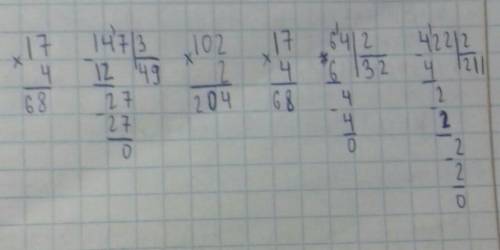 17 147|3 102 17 64|2 422|2
× 4 - 12 49 × 2 × 4 - 6 32 - 4 211
68 - 27 204 68 - 4 - 2
27 4 2
0 0 - 2
2
0